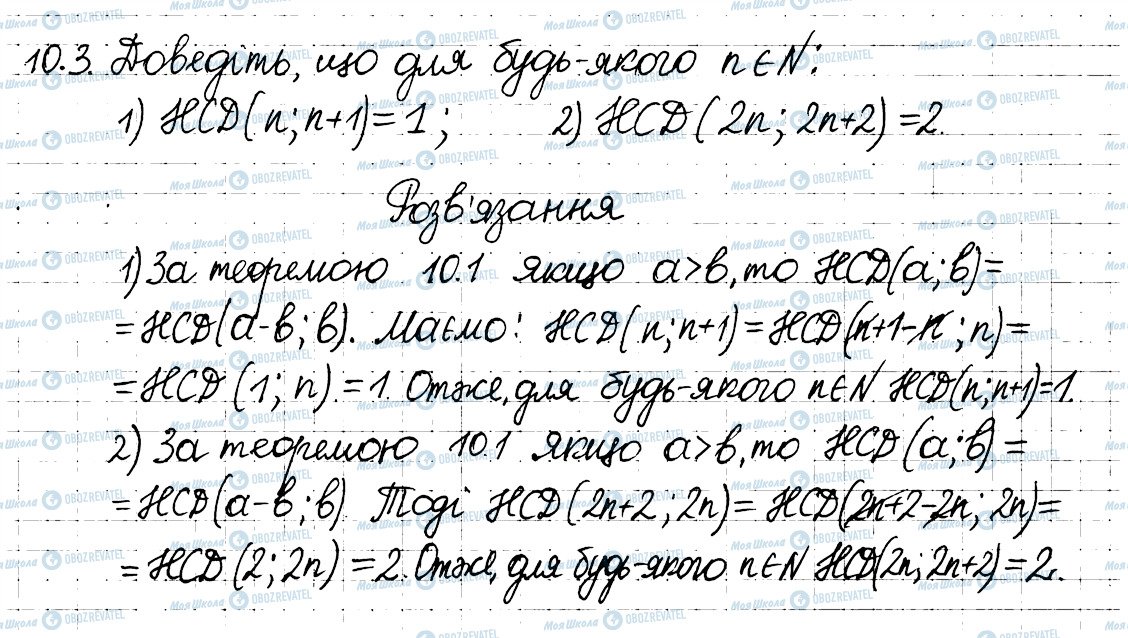 10.3. Доведіть, що для будь-якого n∈N:
1) НСД(n; n+1)=1; 2) НСД(2n; 2n+2)=2.
Розв'язання
1) За теоремою 10.1 якщо a>b, то НСД(a; b)=
=НСД(a-b; b). Маємо: НСД(n; n+1)=НСД(n+1-n; n)=
=НСД(1; n)=1. Отже, для будь-якого n∈N НСД(n; n+1)=1.
2) За теоремою 10.1 якщо a>b, то НСД(a; b)=
=НСД(a-b; b) Тоді НСД(2n+2; 2n)=НСД(2n+2-2n; 2n)=
=НСД(2; 2n)=2. Отже, для будь-якого n∈N НСД(2n; 2n+2)=2.